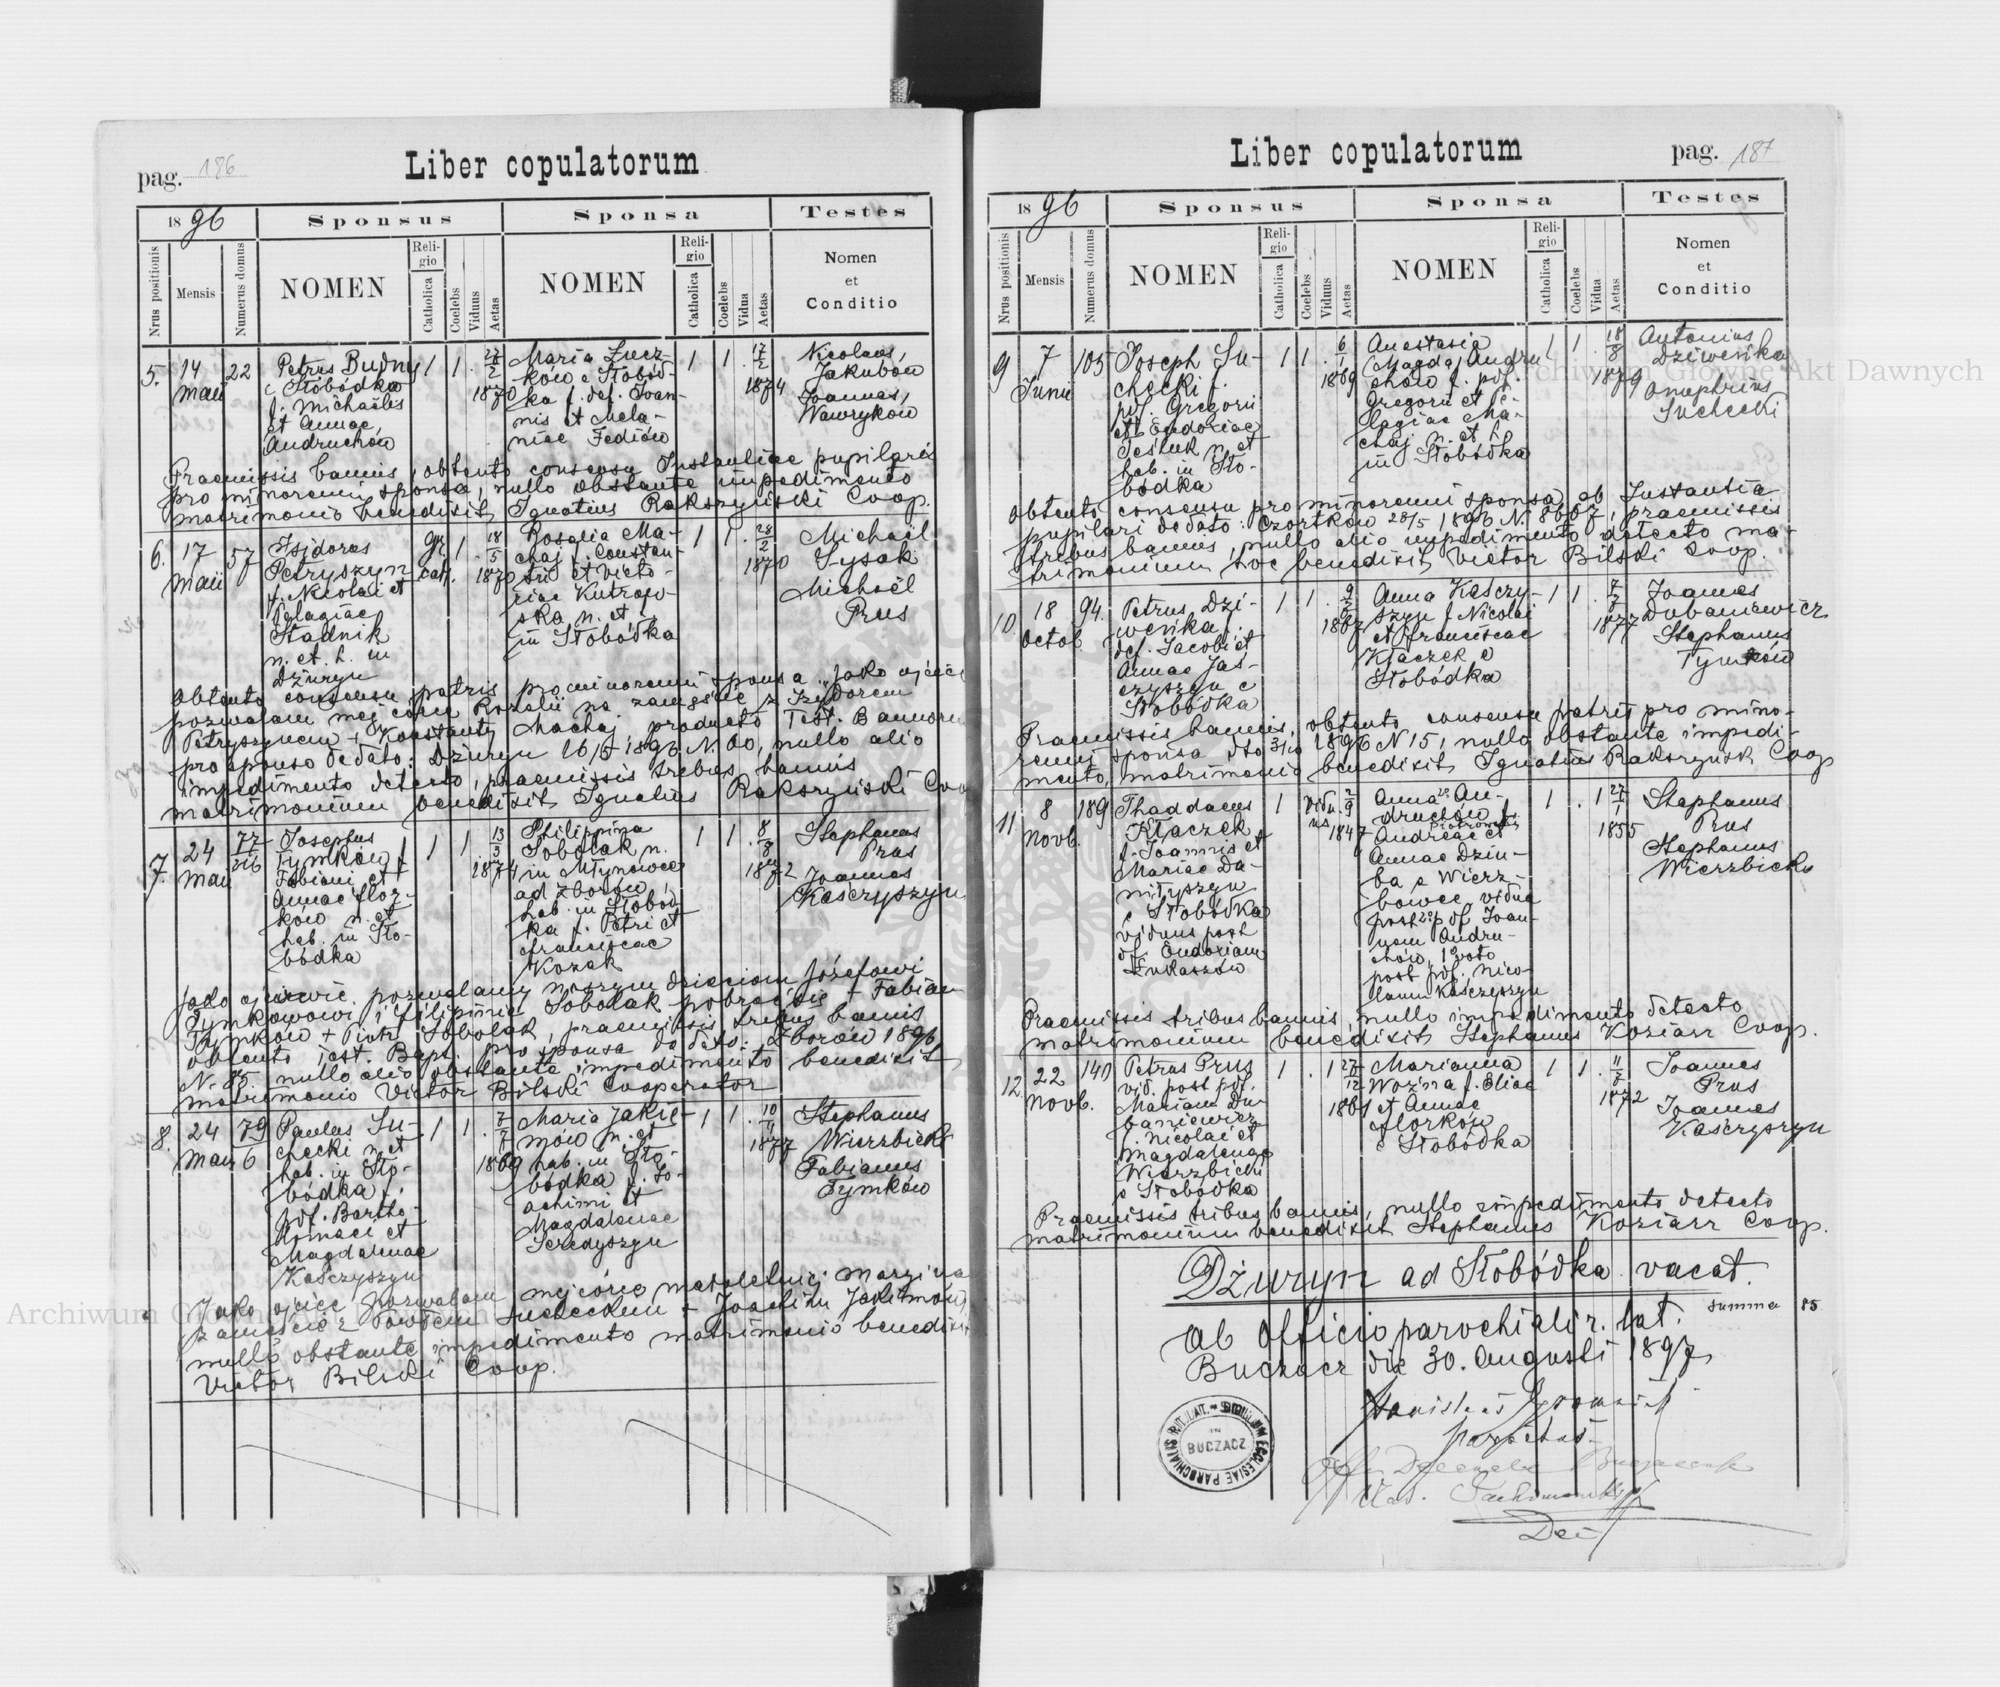 pag. 186
Liber copulatorum
1896
Sponsus
Sponsa
Testes
Nrus positionis
Mensis
Numerus domus
NOMEN
Religio
Catholica
Coelebs
Viduus
Aetas
NOMEN
Religio
Catholica
Coelebs
Vidua
Aetas
Nomen
et
Conditio
5. 14 Maii
22
Petrus Budny
e Słobódka
f. Michaëlis
et Annae
Andruchów
1 1
1870
Maria Łucz-
ków e Słobód-
ka f. def. Joan-
nis et Mela-
niae Fediów
1 1
17/2
1874
Nicolaus
Jakubów
Joannes
Wawryków
Praemissis bannis, obtento consensu Instantiae pupilaris
pro minorenni sponsa, nullo obstante impedimento
matrimonio benedixit Ignatius Rakszyński Coop.
6. 17 Maii
57
Isidorus
Petryszyn
f. Nicolai et
Pelagiae
Stadnik
n. et. h. in
Dżuryn
gr. cath.
1
18/5
1870
Rosalia Ma-
chaj f. Constan-
tii et Victo-
riae Kutrow-
ska n. et h.
in Słobódka
1 1
28/2
1870
Michaël
Sysak
Michaël
Prus
Obtento consensu patris pro minorenni sponsa "jako ojciec
pozwalam mej córce Rozalii na zamęście z Izydorem
Petryszynem + Konstanty Machaj, producto Test. Bannorum
pro sponso de dato: Dżuryn 16/5 1896 N. 60, nullo alio
impedimento detecto, praemissis trebus bannis
matrimonium benedixit Ignatius Rakszyński Coo
7. 24 Maii
77
216
Josephus
Tymków f.
Fabiani et
Annae Flor-
ków n. et
hab. in Sło-
bódka
1 1
13/3
1874
Philippina
Sobolak n.
in Młynowce
ad Zborów
hab. in Słobód-
ka f. Petri et
Franciscae
Kozak
1 1
8/8
1872
Stephanus
Prus
Joannes
Kaśczyszyn
Jako ojcowie pozwalamy naszym dzieciom Józefowi
Tymkowowi i Filipinie Sobolak pobrać się + Fabian
Tymków + Piotr Sobolak, praemissis trebus bannis
obtento Test. Bapt. pro sponsa de dato: Zborów 1896
N. 85. nullo alio obstante impedimento benedixit
matrimonio Victor Bilski Cooperator
8. 24 Maii
79
6
Paulus Su-
checki n. et
hab. in Sło-
bódka f.
pdf. Bartho-
lomaei et
Magdalenae
Kaśczyszyn
1 1
7/7
1869
Maria Jakie-
mów n. et
hab. in Sło-
bódka f. Jo-
achimi et
Magdalenae
Seredyszyn
1 1
10/11
1877
Stephanus
Wierzbicki
Fabianus
Tymków
Jako ojciec pozwalam mej córce małoletniej Maryi na
zamęście z Pawłem Sucheckim + Joachim Jakimów,
nullo obstante impedimento matrimonio benedixit
Victor Bilski Coop.
Liber copulatorum
pag. 187
1896
Sponsus
Sponsa
Testes
Nrus positionis
Mensis
Numerus domus
NOMEN
Religio
Catholica
Coelebs
Viduus
Aetas
NOMEN
Religio
Catholica
Coelebs
Vidua
Aetas
Nomen
et
Conditio
9 7 Junii
105
Joseph Su-
checki f.
pdf. Gregorii
et Eudoxiae
Teśluk n. et
hab. in Sło-
bódka
1 1
6/1
1869
Anastasia
(Magda) Andru
chów f. pdf.
Gregorii et Pe-
lagiae Ma-
chaj n. et h.
in Słobódka
1 1
18/8
1879
Antonius
Dziweńka
Onuphrius
Suchecki
Obtento consensu pro minorenni sponsa ab Instantia
pupilari de dato: Czortków 28/5 1896 N. 8607, praemissis
trebus bannis, nullo alio impedimento detecto ma-
trimonium hoc benedixit Victor Bilski Coop.
10 18 Octob.
94.
Petrus Dzi-
weńka f.
def. Jacobi et
Annae Jaś-
czyszyn e
Słobódka
1 1
1867
Anna Kaśczy-
szyn f. Nicolai
et Franciscae
Kłaczek e
Słobódka
1 1
1877
Joannes
Dubaniewicz
Stephanus
Tymków
Praemissis bannis, obtento consensu patris pro mino-
renni sponsa dto 3/10 1896 N 15, nullo obstante impedi-
mento, matrimonio benedixit Ignatius Rakszyński Coop
11 8 Novb.
189
Thaddaeus
Kłaczek
f. Joannis et
Mariae Da-
niłyszyn
e Słobódka
viduus post
df. Eudoxiam
Łukaszów
1
viduus
2/9
1847
Anna An-
druchów f.
Andreae Piotrowski et
Annae Dziu-
ba e Wierz-
bowce, vidua
post 2° pdf. Joan-
nem Andru-
chów, 1° voto
post pdf. Nico-
laum Kaśczyszyn
1 . 1
27/1
1855
Stephanus
Prus
Stephanus
Wierzbicki
Praemissis tribus bannis, nullo impedimento detecto
matrimonium benedixit Stephanus Koziarz Coop.
12 22 Novb.
140
Petrus Prus
vid. post pdf.
Mariam Du-
baniewicz
f. Nicolai et
Magdalenae
Wierzbicki
e Słobódka
1 . 1
27/12
1861
Marianna
Woźna f. Eliae
et Annae
Florków
e Słobódka
1 1
11/7
1872
Joannes
Prus
Joannes
Kaśczyszyn
Praemissis tribus bannis, nullo impedimento detecto
matrimonium benedixit Stephanus Koziarz Coop.
Dżuryn ad Słobódka vacat.
Summa 85
Ab Officio parochiali r. lat.
Buczacz die 30. Augusti 1897
Stanislaus Gromnicki
parochus
SIGILLUM ECCLESIAE PAROCHIALIS RIT. LAT.
IN
BUCZACZ
Archiwum Główne Akt Dawnych
Archiwum Główne Akt Dawnych